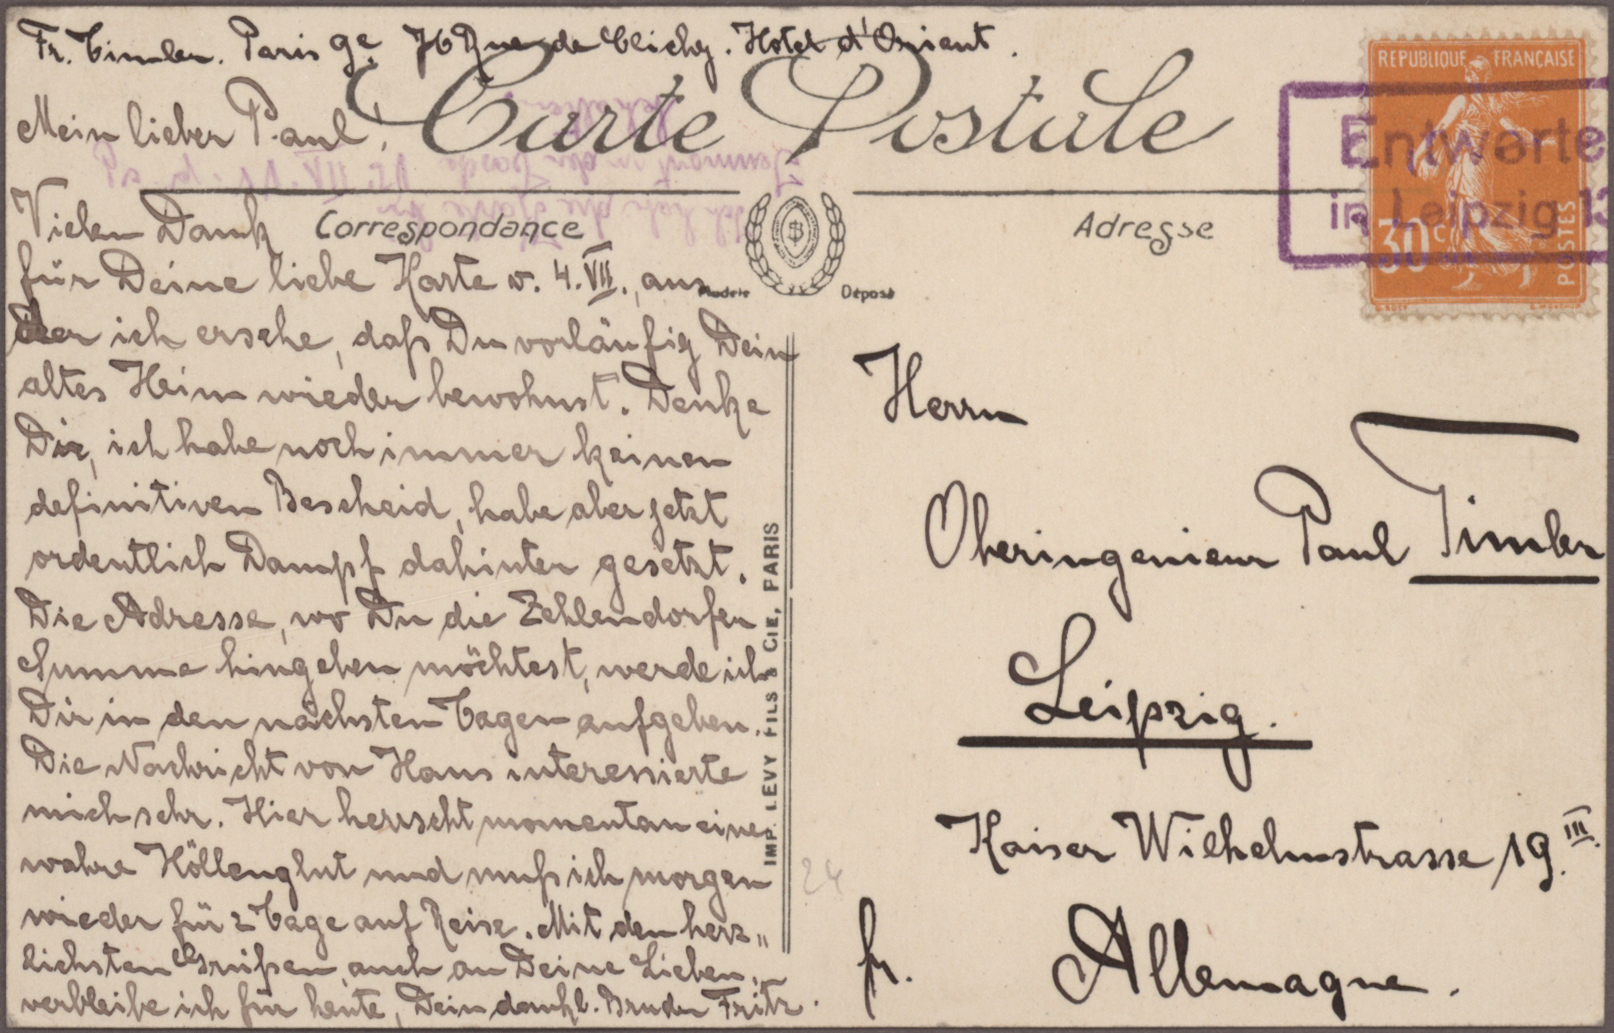 Fr. Timler. Paris 9e. 76 Rue de Clichy. Hotel d'Orient.
Mein lieber Paul!
Carte Postale
Vielen Dank
für Deine liebe Karte v. 4. VII., aus
der ich ersehe, daß Du vorläufig Dein
altes Heim wieder bewohnst. Denke
Dir, ich habe noch immer keinen
definitiven Bescheid, habe aber jetzt
ordentlich Dampf dahinter gesetzt.
Die Adresse, wo Du die Zehlendorfer
Summe hingeben möchtest, werde ich
Dir in den nächsten Tagen aufgeben.
Die Nachricht von Hans interessierte
mich sehr. Hier herrscht momentan eine
wahre Höllenglut und muß ich morgen
wieder für 2 Tage auf Reise. Mit den herz„
lichsten Grüßen, auch an Deine Lieben,
verbleibe ich für heute, Dein dankb. Bruder Fritz.
Correspondance
Modèle Déposé
Adresse
IMP. LEVY FILS & CIE, PARIS
REPUBLIQUE FRANÇAISE
30c
POSTES
Entwerte
in Leipzig 13
Herrn
Oberingenieur Paul Timler
Leipzig.
Kaiser Wilhelmstrasse 19 III.
fr. Allemagne.
24